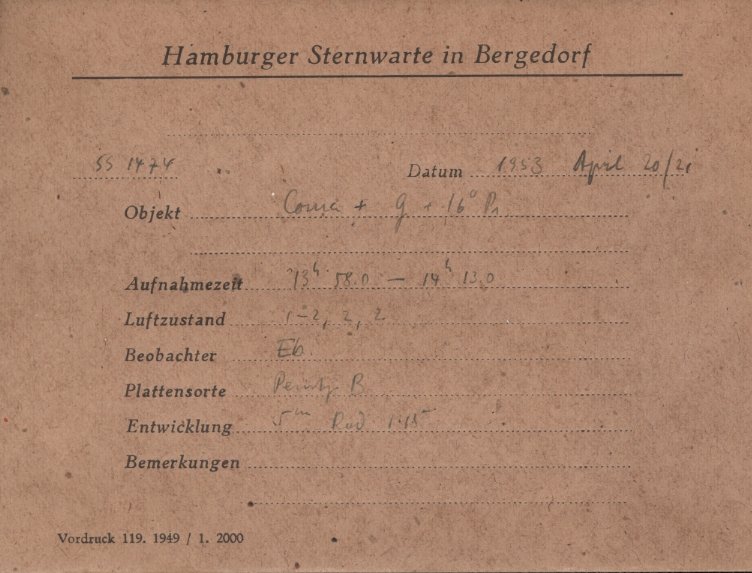 Hamburger Sternwarte in Bergedorf
SS 1474 Datum 1953 April 20/21
Objekt Coma + 16°
Aufnahmezeit 13h 58.0 — 14h 13.0
Luftzustand 1–2, 2, 2
Beobachter
Plattensorte B
Entwicklung 5m Rod 1:15
Bemerkungen
Vordruck 119. 1949 / 1. 2000